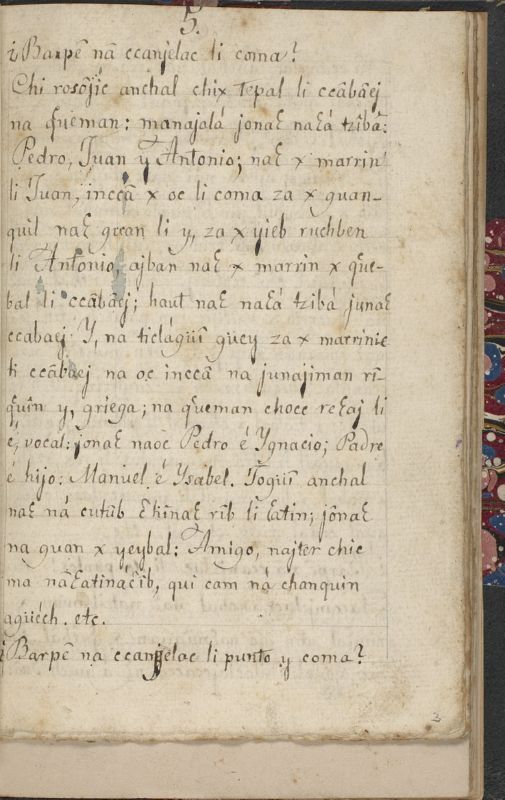 5.
¿Barpê nâ ccanjelac li coma?
Chi rosôjic anchal chix Tepal li ccâbâej
na queman: manajalá jonaꜫ naꜫá tzîbâ:
Pedro, Juan y Antonio; naꜫ x marrin
li Juan, inccâ x oc li coma za x guan-
quil naꜫ gccan li y, za x yieb ruchben
li Antonio, ajban naꜫ x marrin x que-
bal li ccâbâej; haut naꜫ naꜫá tzibá junaꜫ
ccabaej Y, na ticlágüî güey za x marrinic
li ccâbaej na oc inccâ na junajiman rî-
quîn y, griega; na queman chocc reꜫaj li
é, vocal: jonaꜫ naôc Pedro é Ygnacio; Padre
é hijo: Manuel é Ysabel. Toqüî anchal
naꜫ ná cutûb ꜫhînaꜫ rîb li ꜫatin; jônaꜫ
na guan x yeybal: Amigo, najter chic
ma nâꜫatinaĉîb, qui cam na chanquin
agüéch. etc.
¿Barpê na ccanjelac li punto y coma?
3